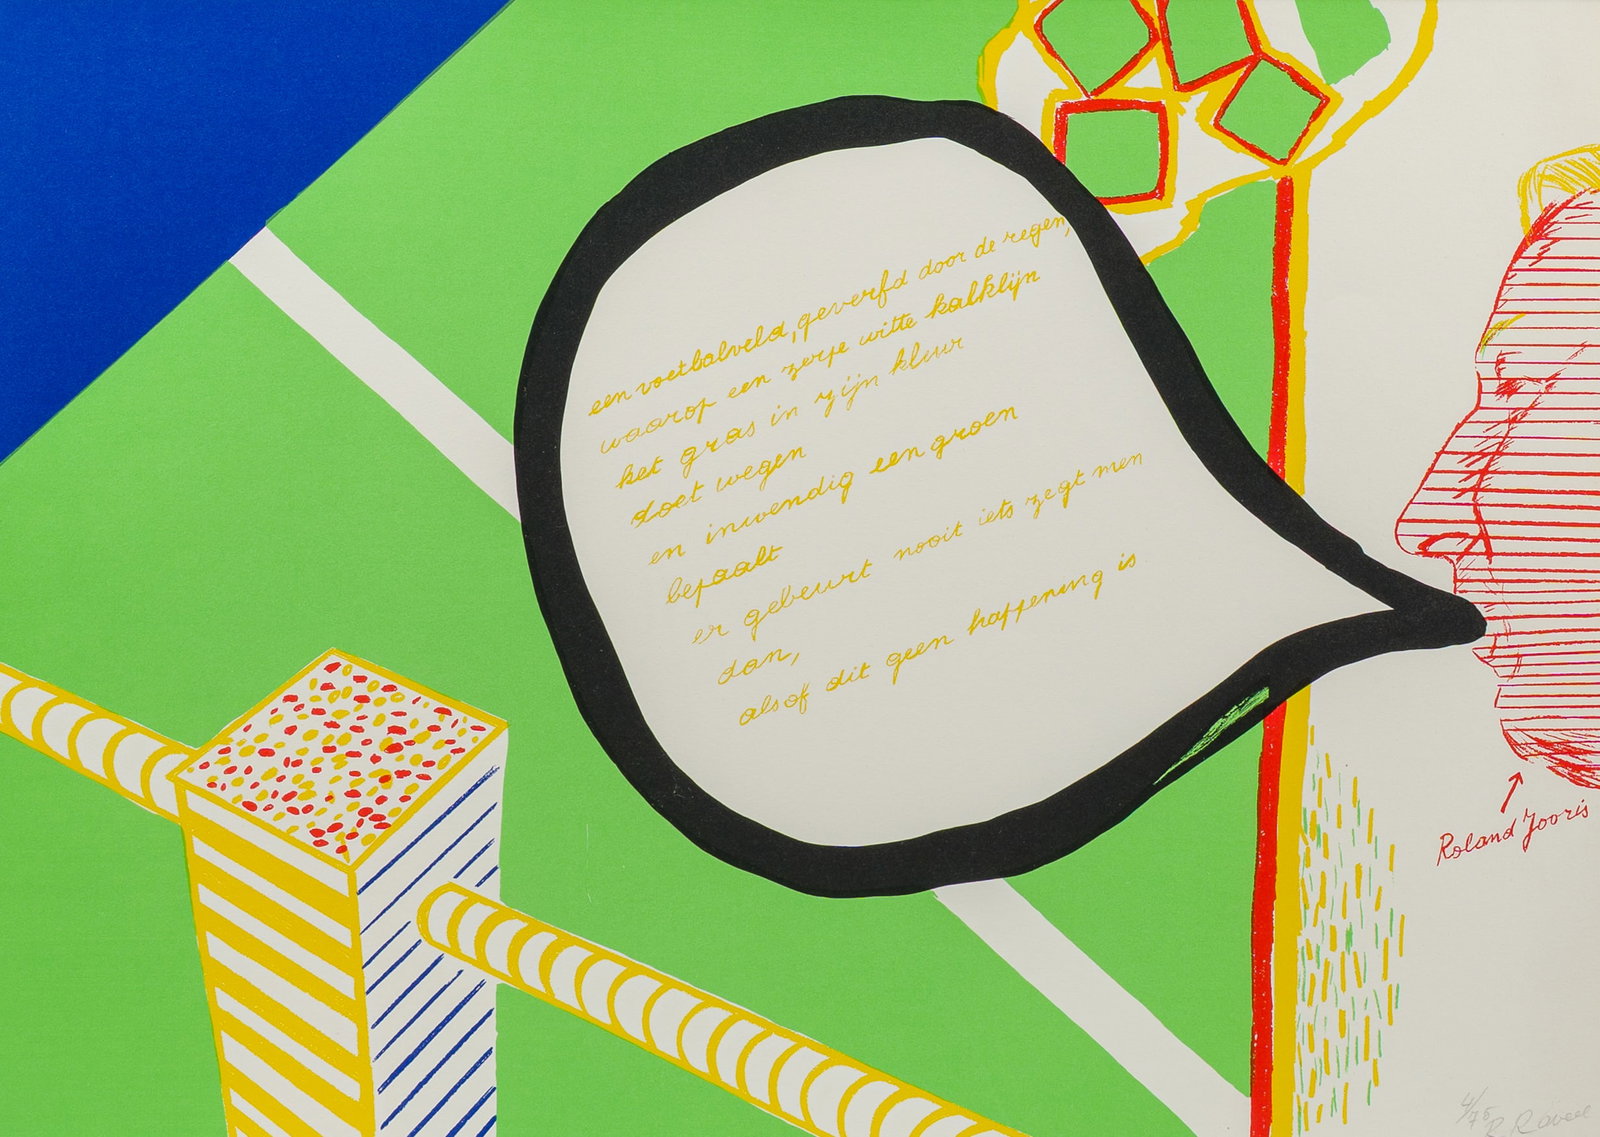 een voetbalveld, geverfd door de regen,
waarop een zerpe witte kalklijn
het gras in zijn kleur
doet wegen
en inwendig een groen
bepaalt
er gebeurt nooit iets zegt men
dan,
alsof dit geen happening is
Roland Jooris
4/75
R Raveel